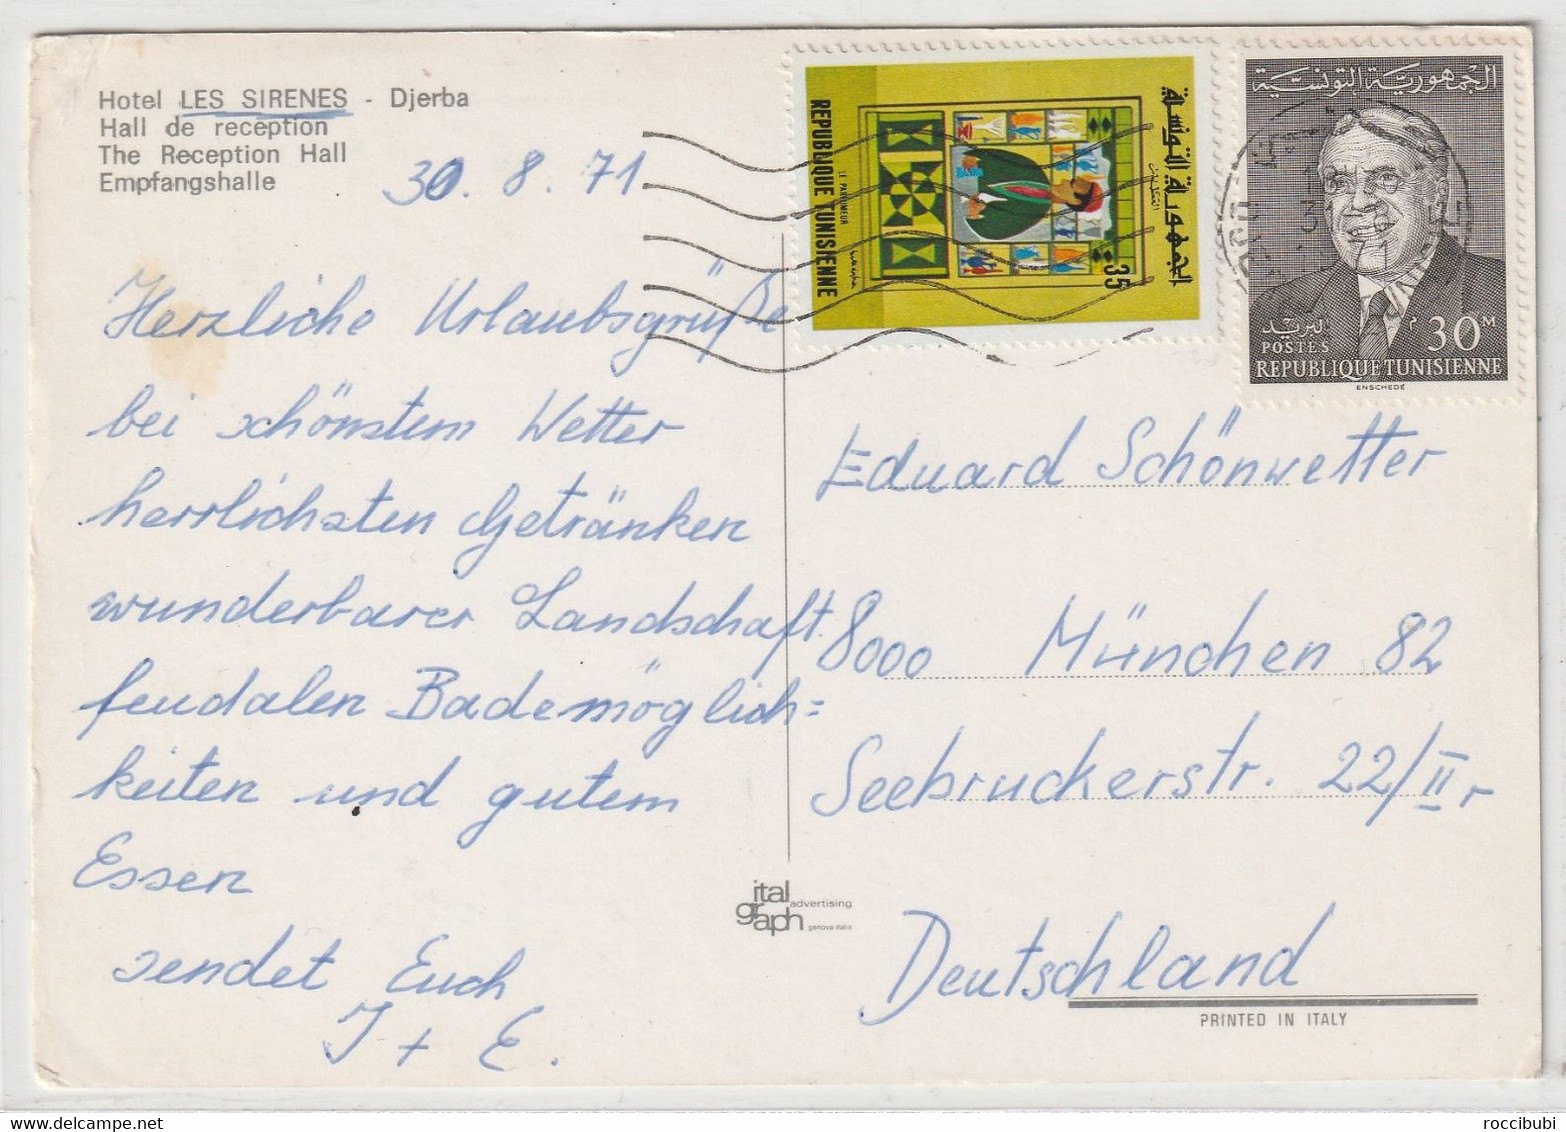 Hotel LES SIRENES - Djerba
Hall de reception
The Reception Hall
Empfangshalle
30. 8. 71
Herzliche Urlaubsgrüße
bei schönstem Wetter
herrlichsten Getränken
wunderbarer Landschaft
feudalen Bademöglich=
keiten und gutem
Essen
sendet Euch
J + E.
الجمهورية التونسية
REPUBLIQUE TUNISIENNE
LE PARFUMEUR
35
الجمهورية التونسية
البريد
POSTES
30 M م
REPUBLIQUE TUNISIENNE
ENSCHEDÉ
Eduard Schönwetter
8000 München 82
Seebruckerstr. 22/II r
Deutschland
ital
graph
advertising
genova italia
PRINTED IN ITALY
roccibubi